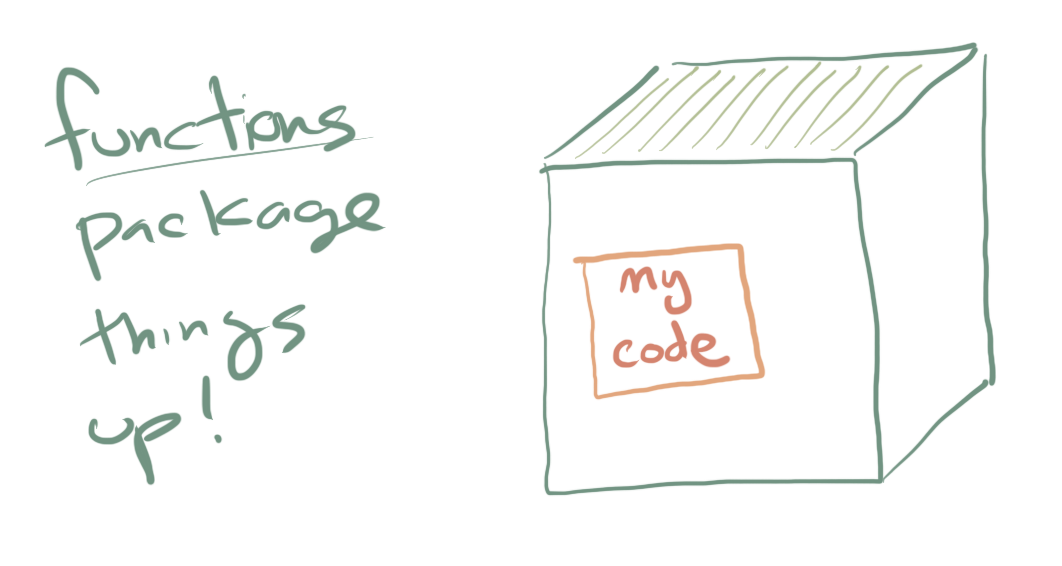 functions
package
things
up!
my
code